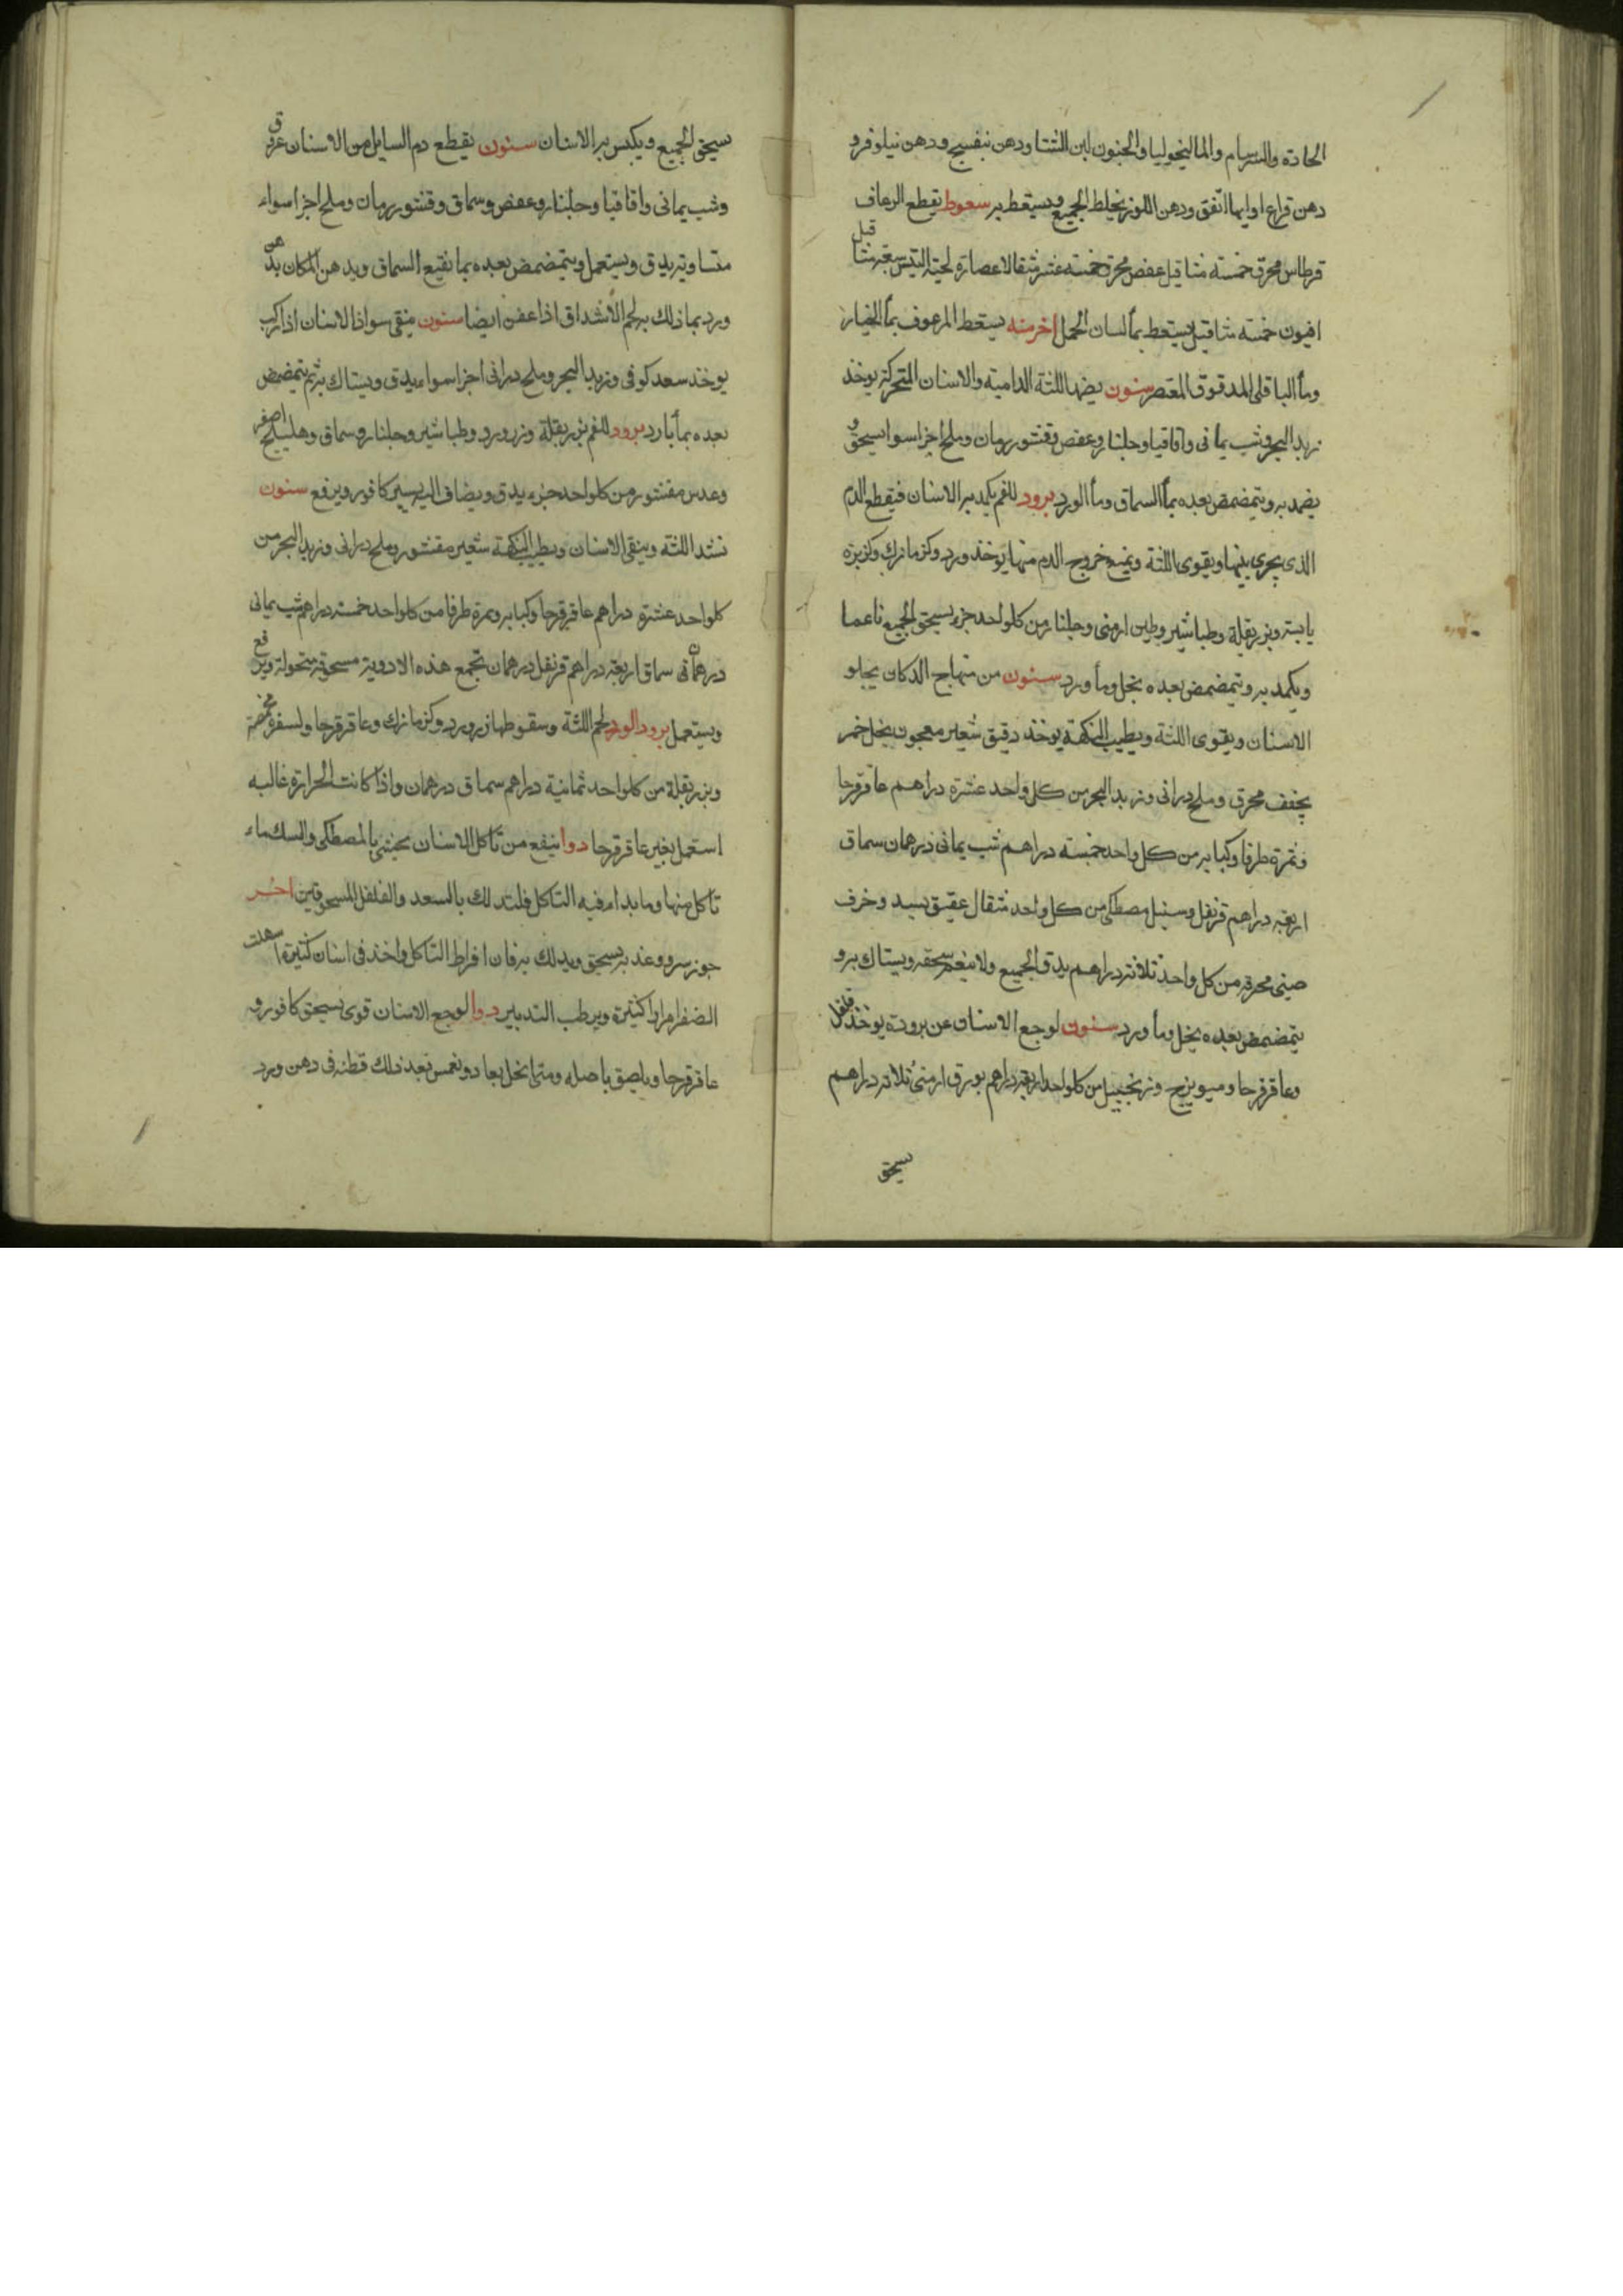 الحادة والسرسام والمالنخوليا والجنون لبن النسا ودهن بنفسج ودهن نيلوفر و
دهن قراع او ايما اتفق ودهن اللوز يخلط الجميع ويستعط به سعوط يقطع الرعاف
قرطاس محرق خمسته مثاقيل عفص محرق خمسته عشر مثقالا عصارة لحية التيس سبعة مثاقيل
افيون خمسته مثاقيل يستعط بمأ لسان الحمل اخر منه يسعط المرعوف بمأ الخيار
ومأ الباقلى المدقوق المعتصر سنون يضمد اللثة الدامية والاسنان المتحركة يوخذ
زبد البحر وشب يمانى واقاقيا وجلنار وعفص وقشور رمان وملح اجزا سوا يسحق و
يضمد به ويتمضمض بعده بمأ السماق ومأ الورد برود للفم يكبد به الاسنان فيقطع الدم
الذى يجرى بينها ويقوى اللثة ويمنع خروج الدم منها يوخذ ورد وكزمازك وكزبزة
يابسة وبزر بقلة وطباشير وطين ارمنى وجلنار من كلواحد جزء يسحق الجميع ناعما
ويكمد به ويتمضمض بعده بخل ومأ ورد سنون من منهاج الدكان يجلو
الاسنان ويقوى اللثة ويطيب النكهة يوخذ دقيق شعير معجون بخل خمر
يجفف محرق وملح درانى وزبد البحر من كل واحد عشرة دراهم عاقرقرحا
وثمرة طرفا وكبابه من كل واحد خمسته دراهم شب يمانى درهمان سماق
اربعه دراهم قرنفل وسنبل مصطكى من كل واحد مثقال عقيق بسد وخزف
صينى محرقه من كل واحد ثلاثه دراهم يدق الجميع ولا ينعم سحقه ويستاك به و
يتمضمض بعده بخل ومأ ورد سنون لوجع الاسنان عن برودة يوخذ فلفل
وعاقرقرحا وميويزج وزنجبيل من كلواحد اربعة دراهم بورق ارمنى ثلاثه دراهم
يسحق
يسحق الجميع ويكبس به الاسنان سنون يقطع دم السايل من الاسنان عروق
وشب يمانى واقاقيا وجلنار وعفص وسماق وقشور رمان وملح اجزا سواء
متساوية يدق ويستعمل ويتمضمض بعده بما نقيع السماق ويدهن المكان بدهن
ورد بما ذلك به لحم الاشداق اذا عفن ايضا سنون ينقى سواد الاسنان اذا ركب
يوخذ سعد كوفى وزبد البحر وملح درانى اجزا سواء يدق ويستاك به ثم يتمضمض
بعده بمأ بارد برود للفم بزر بقلة وزر ورد وطباشير وجلنار وسماق وهليلج اصفر
وعدس مقشور من كلواحد جزء يدق ويضاف اليه يسير كافور ويرفع سنون
تشد اللثة وينقى الاسنان ويطيب النكهة شعير مقشور وملح درانى وزبد البحر من
كلواحد عشرة دراهم عاقرقرحا وكبابه وثمرة طرفا من كلواحد خمسته دراهم شب يمانى
درهمان سماق اربعه دراهم قرنفل درهمان تجمع هذه الادوية مسحوقة منخولة ويرفع
ويستعمل برود الورد لحم اللثة وسقوطها زر ورد وكزمازك وعاقرقرحا
وبزر بقلة من كلواحد ثمانية دراهم سماق درهمان واذا كانت الحرارة غالبه
استعمل بغير عاقرقرحا دوا ينفع من تاكل الاسنان يحشى بالمصطكى والسك ماء
تاكل منها وما بدا فيه التاكل فلتدلك بالسعد والفلفل المسحوقين اخر
جوز سرو وعذبه يسحق ويدلك به فان افرط التاكل واخذ فى اسنان كثيرة اسهلت
الصفرا مرارا كثيرة ويرطب التدبير دوا لوجع الاسنان قوى يسحق كافور و
عاقرقرحا ويلصق باصله ومتى انحل يعاد ويغمس بعد ذلك قطنه فى دهن ورد